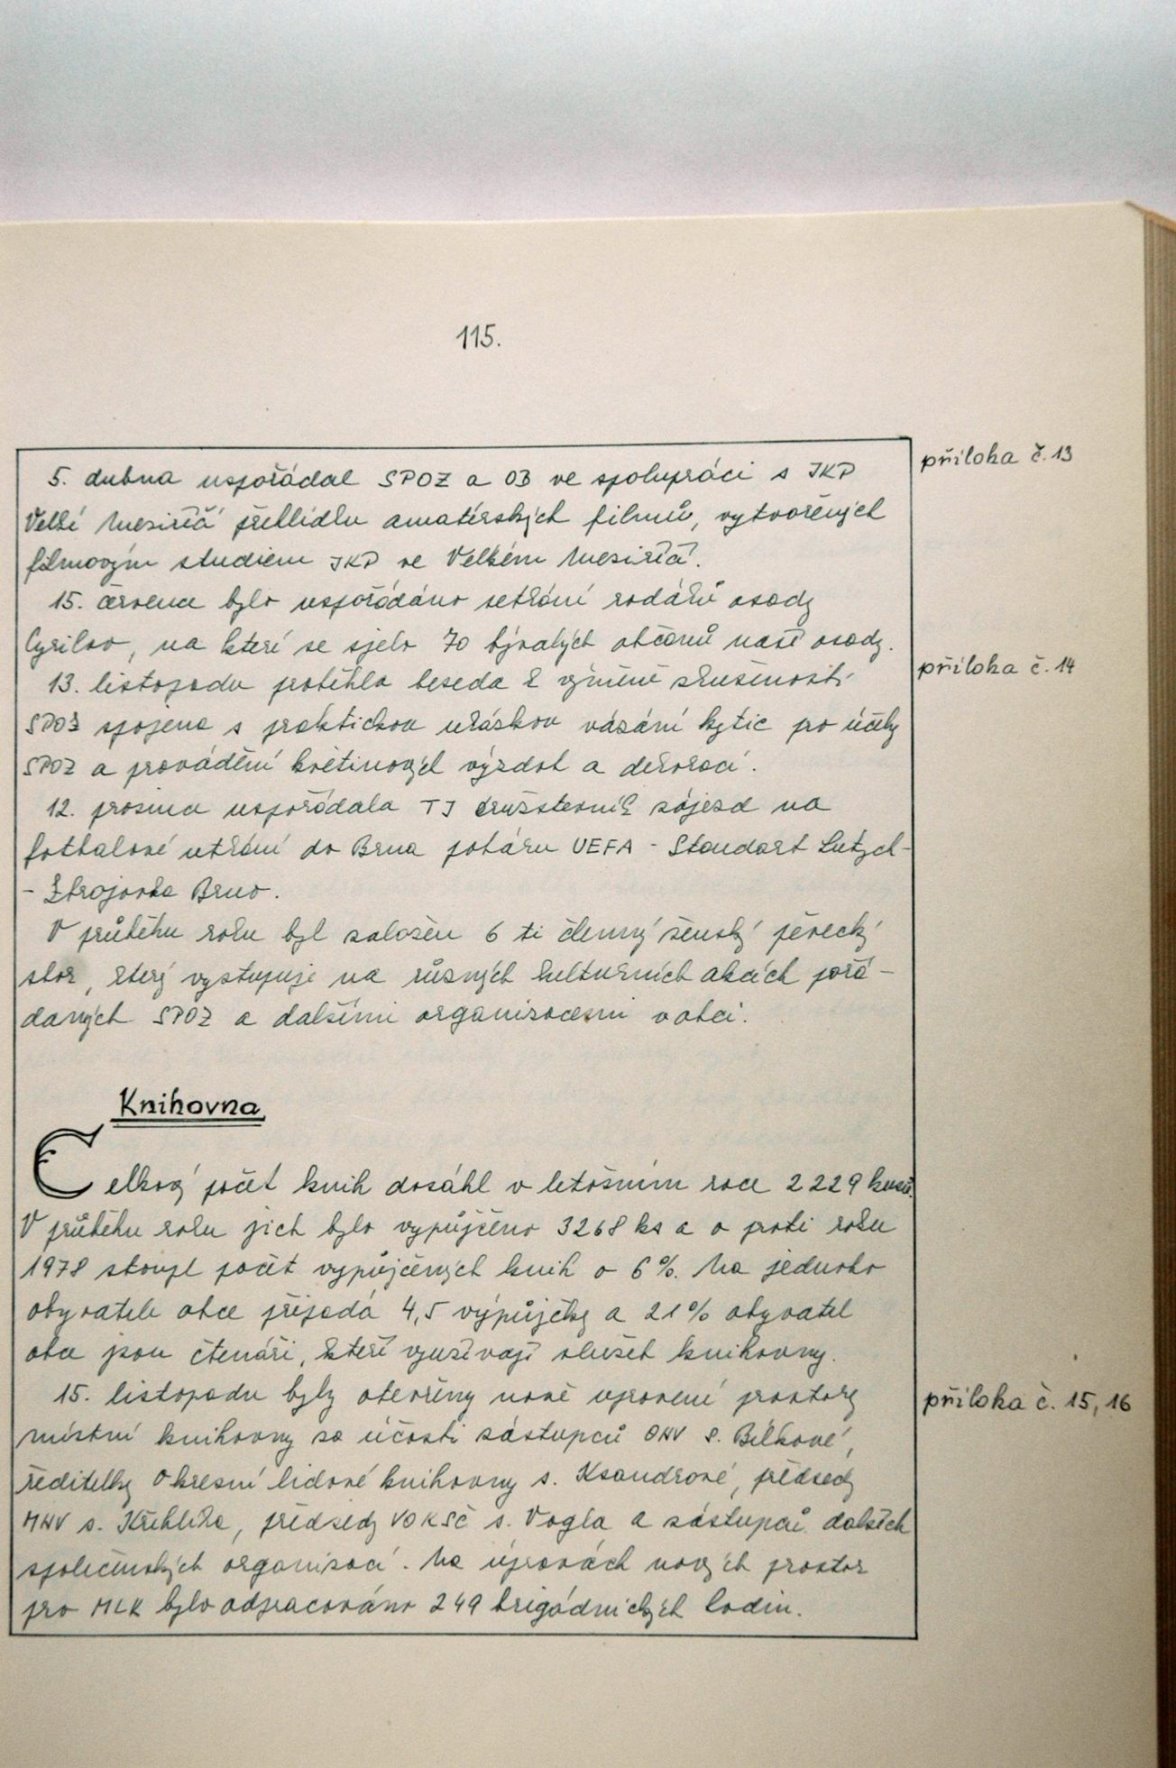 115.
příloha č. 13
5. dubna uspořádal SPOZ a OB ve spolupráci s JKP
Velké Meziříčí přehlídku amatérských filmů, vytvořených
filmovým studiem JKP ve Velkém Meziříčí.
15. června bylo uspořádáno setkání rodáků osady
Cyrilov, na které se sjelo 70 bývalých občanů naší osady.
příloha č. 14
13. listopadu proběhla beseda k výměně zkušeností
SPOZ spojena s praktickou ukázkou vázání kytic pro účely
SPOZ a provádění květinových výzdob a dekorací.
12. prosince uspořádala TJ družstevník zájezd na
fotbalové utkání do Brna poháru UEFA - Standart Lutych -
- Zbrojovka Brno.
V průběhu roku byl založen 6 ti členný ženský pěvecký
sbor, který vystupuje na různých kulturních akcích pořá-
daných SPOZ a dalšími organizacemi v obci.
Knihovna
Celkový počet knih dosáhl v letošním roce 2229 kusů.
V průběhu roku jich bylo vypůjčeno 3268 ks a o proti roku
1978 stoupl počet vypůjčených knih o 6%. Na jednoho
obyvatele obce připadá 4,5 výpůjčky a 21% obyvatel
obce jsou čtenáři, kteří využívají služeb knihovny.
15. listopadu byly otevřeny nově upravené prostory
příloha č. 15, 16
místní knihovny za účasti zástupců ONV s. Bílkové,
ředitelky Okresní lidové knihovny s. Ksandrové, předsedy
MNV s. Křehlíka, předsedy VOKSČ s. Vogla a zástupců dalších
společenských organizací. Na úpravách nových prostor
pro MLK bylo odpracováno 249 brigádnických hodin.